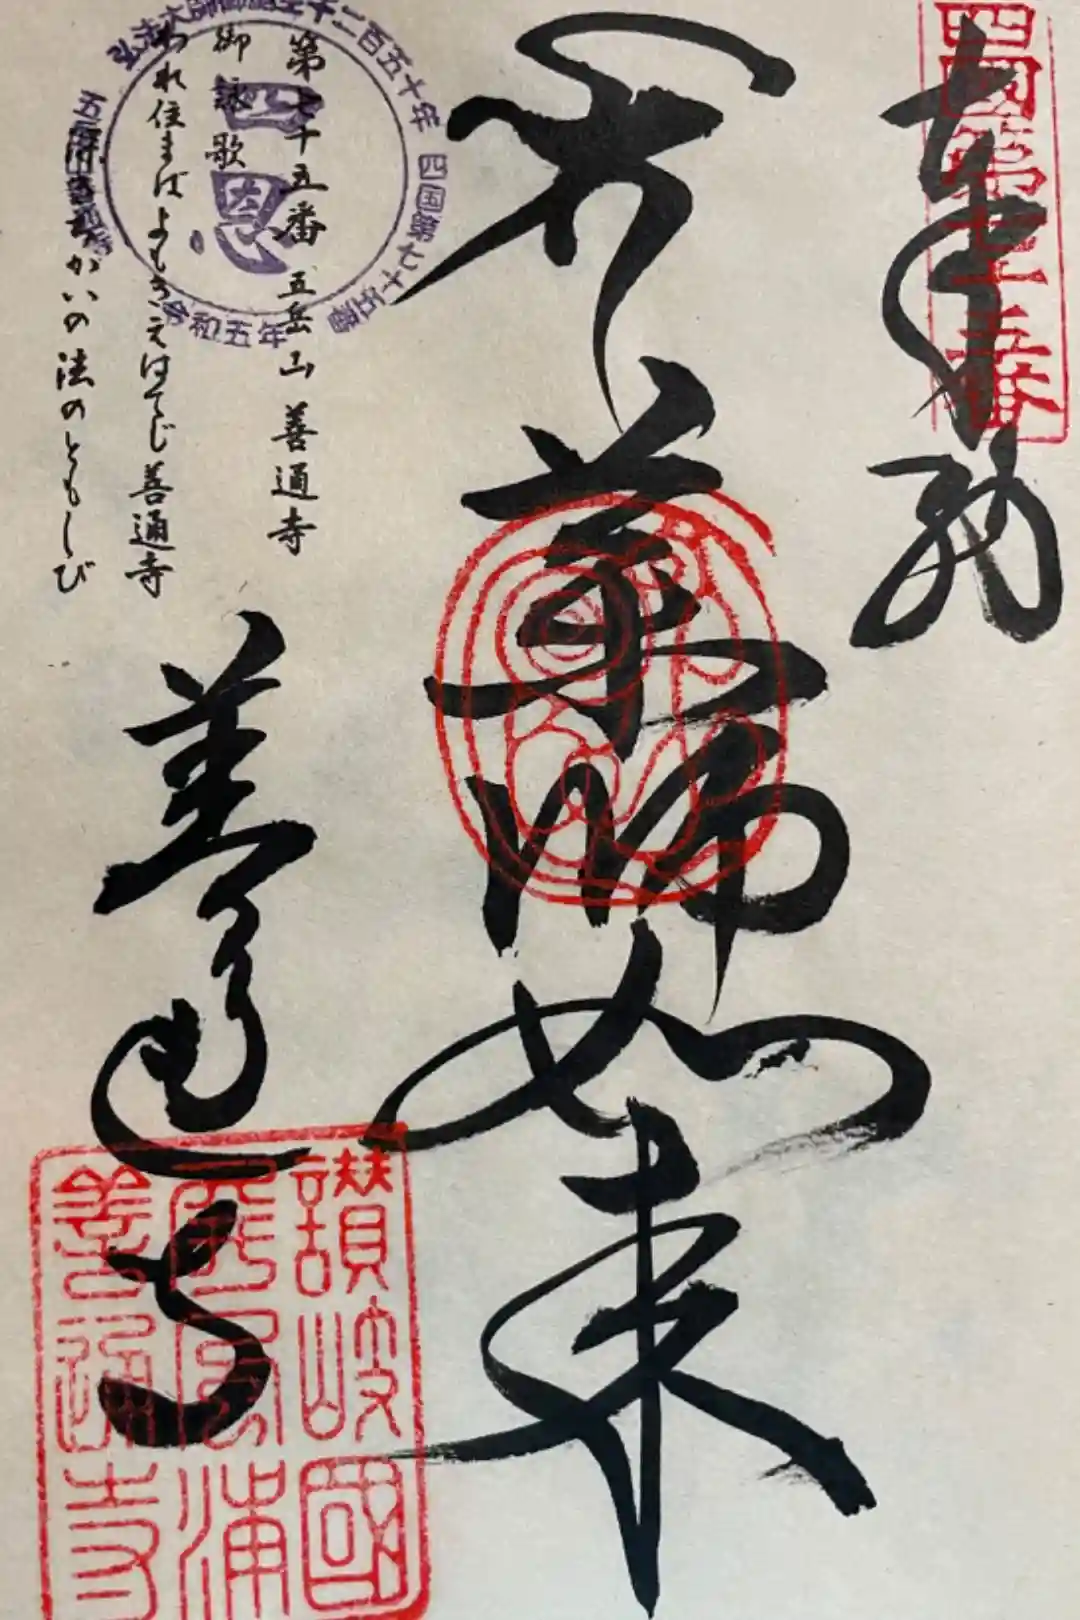 四國第七十五番
奉納
薬師如来
善通寺
第七十五番 五岳山 善通寺
御詠歌
われ住まばよもきえはてじ善通寺
ふかきちかいの法のともしび
弘法大師御誕生千二百五十年
四国第七十五番
令和五年
五岳山善通寺
四恩
讃岐國
屏風浦
善通寺